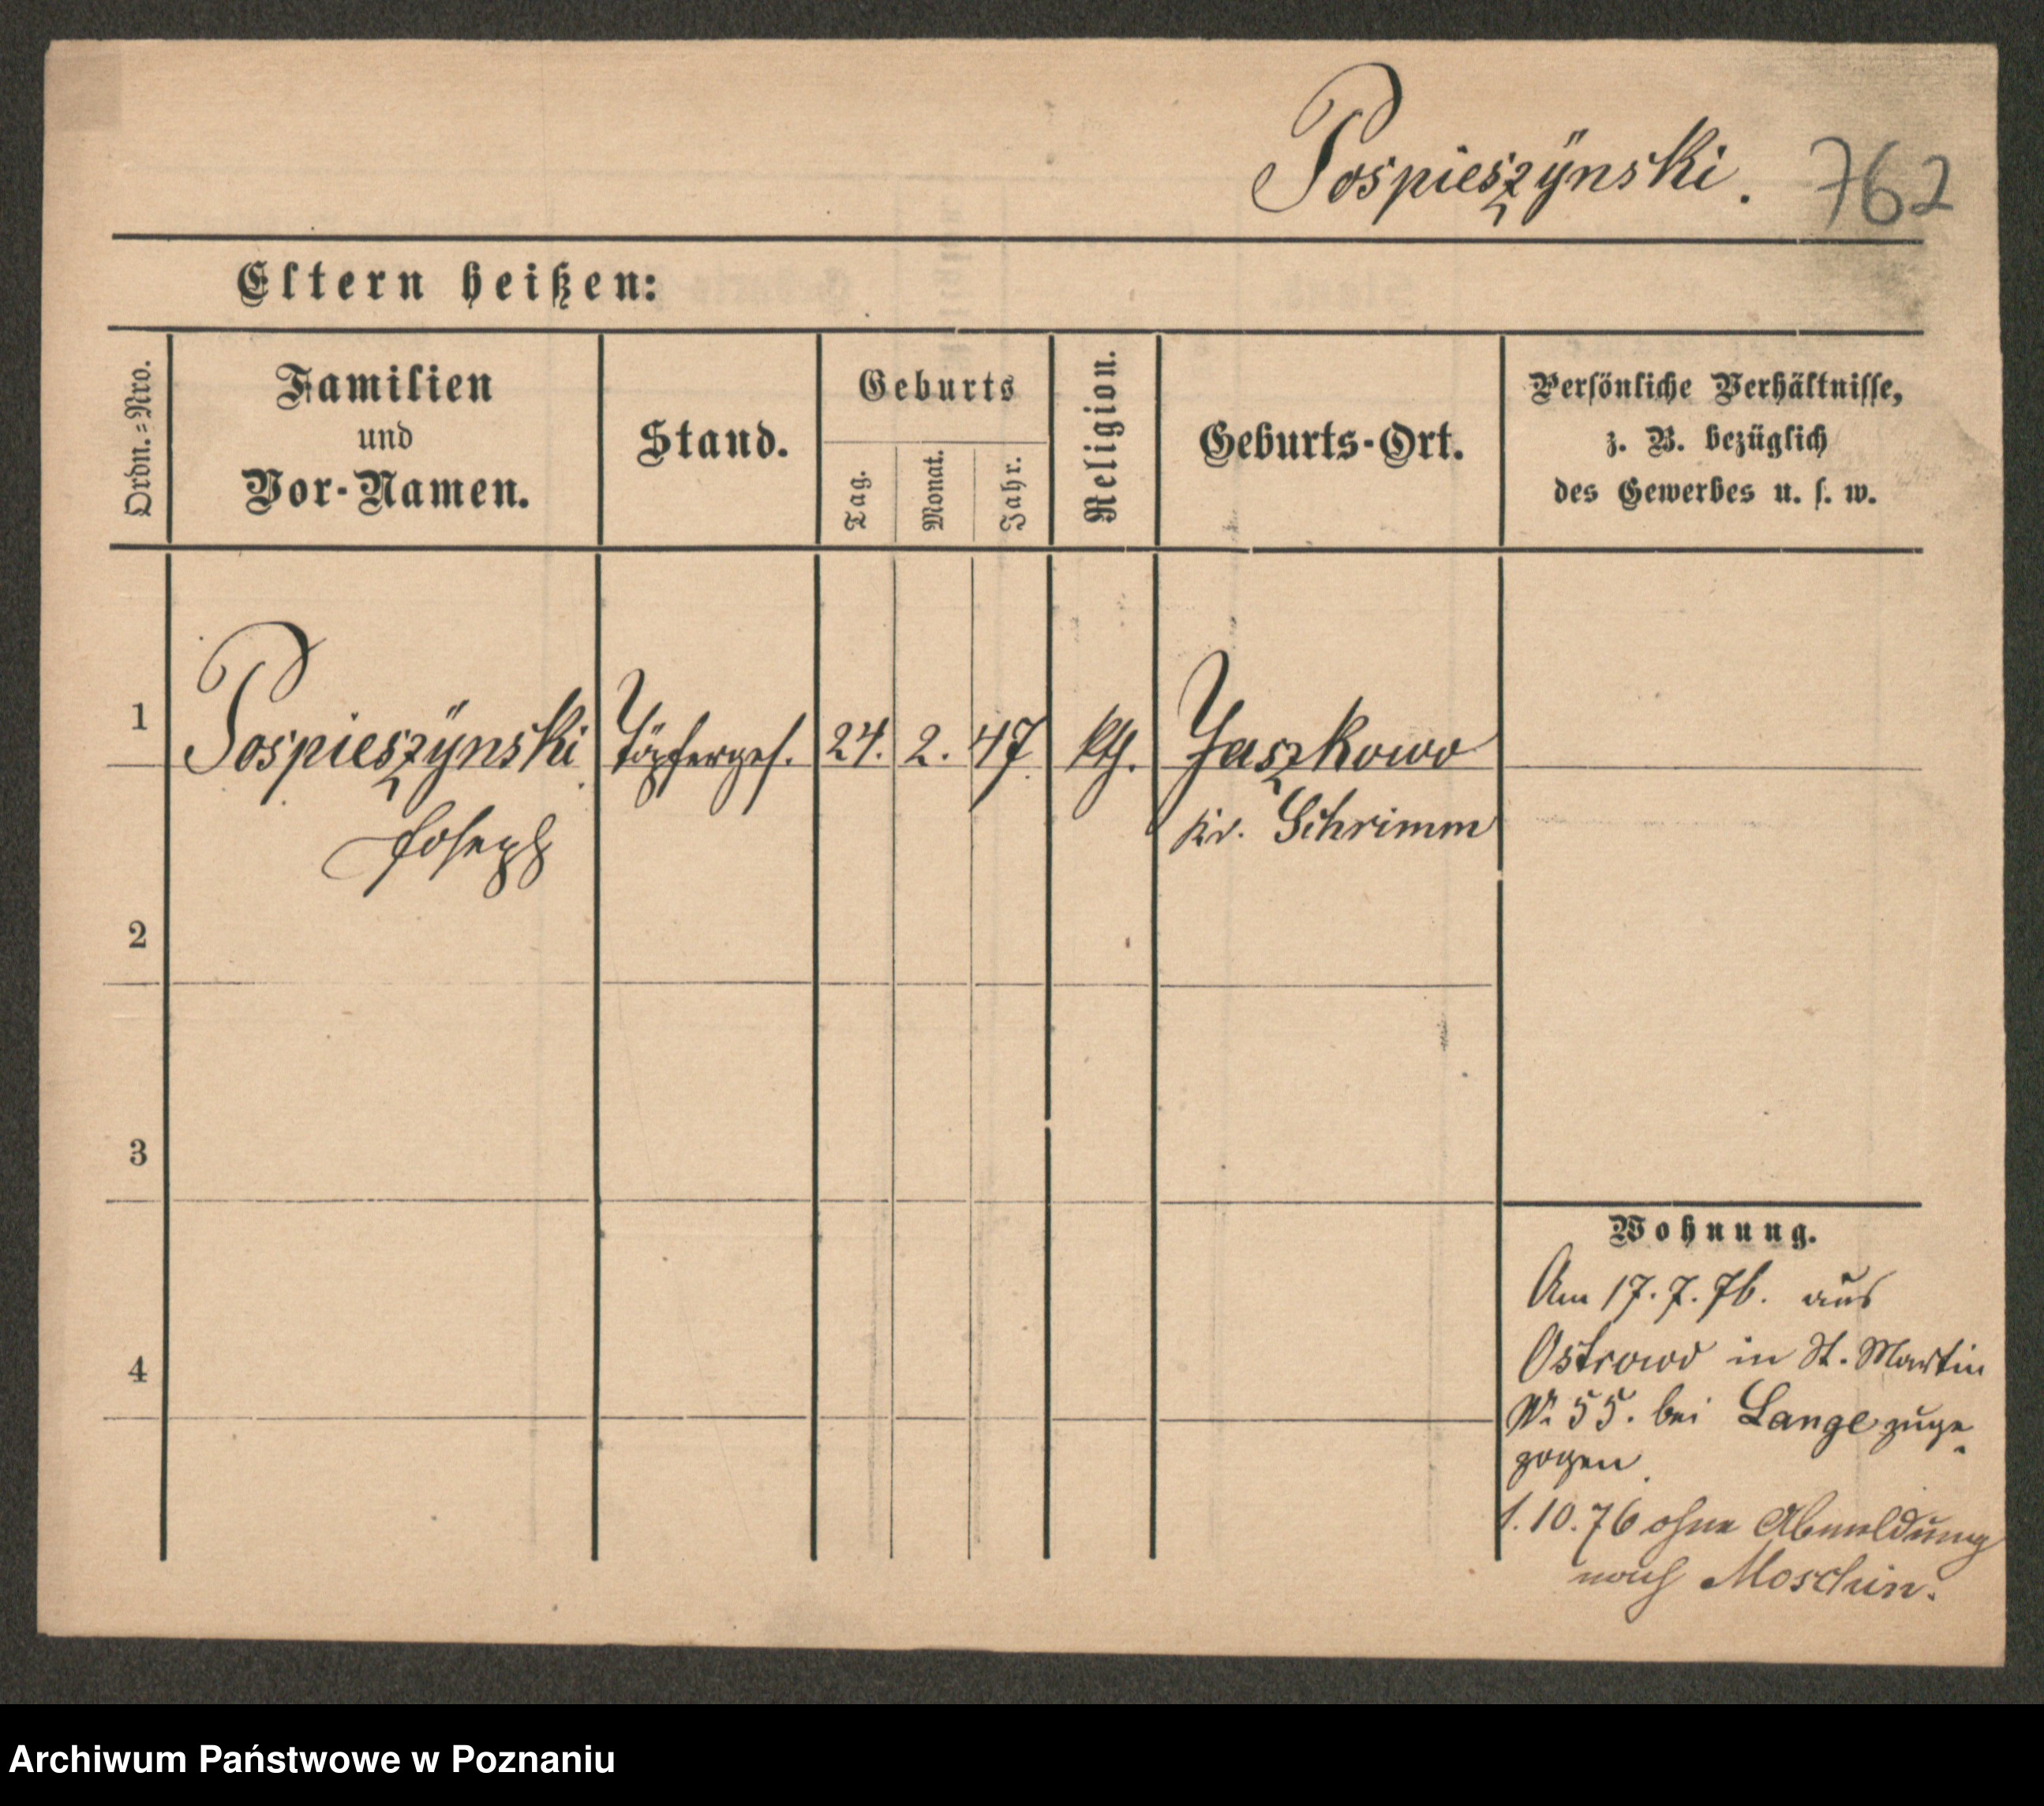 Pospieszÿnski. 762
Eltern heißen:
Ordn.=Nro.
Familien
und
Vor-Namen.
Stand.
Geburts
Tag.
Monat.
Jahr.
Religion.
Geburts-Ort.
Persönliche Verhältnisse,
z. B. bezüglich
des Gewerbes u. s. w.
1 Pospieszÿnski Töpferges. 24. 2. 47 kth. Jaszkowo
Joseph
Kr. Schrimm
2
3
4
Wohnung.
Am 17.7.76. aus
Ostrowo in St. Martin
No 55. bei Lange zuge
zogen.
1.10.76 ohne Abmeldung
nach Moschin.
Archiwum Państwowe w Poznaniu